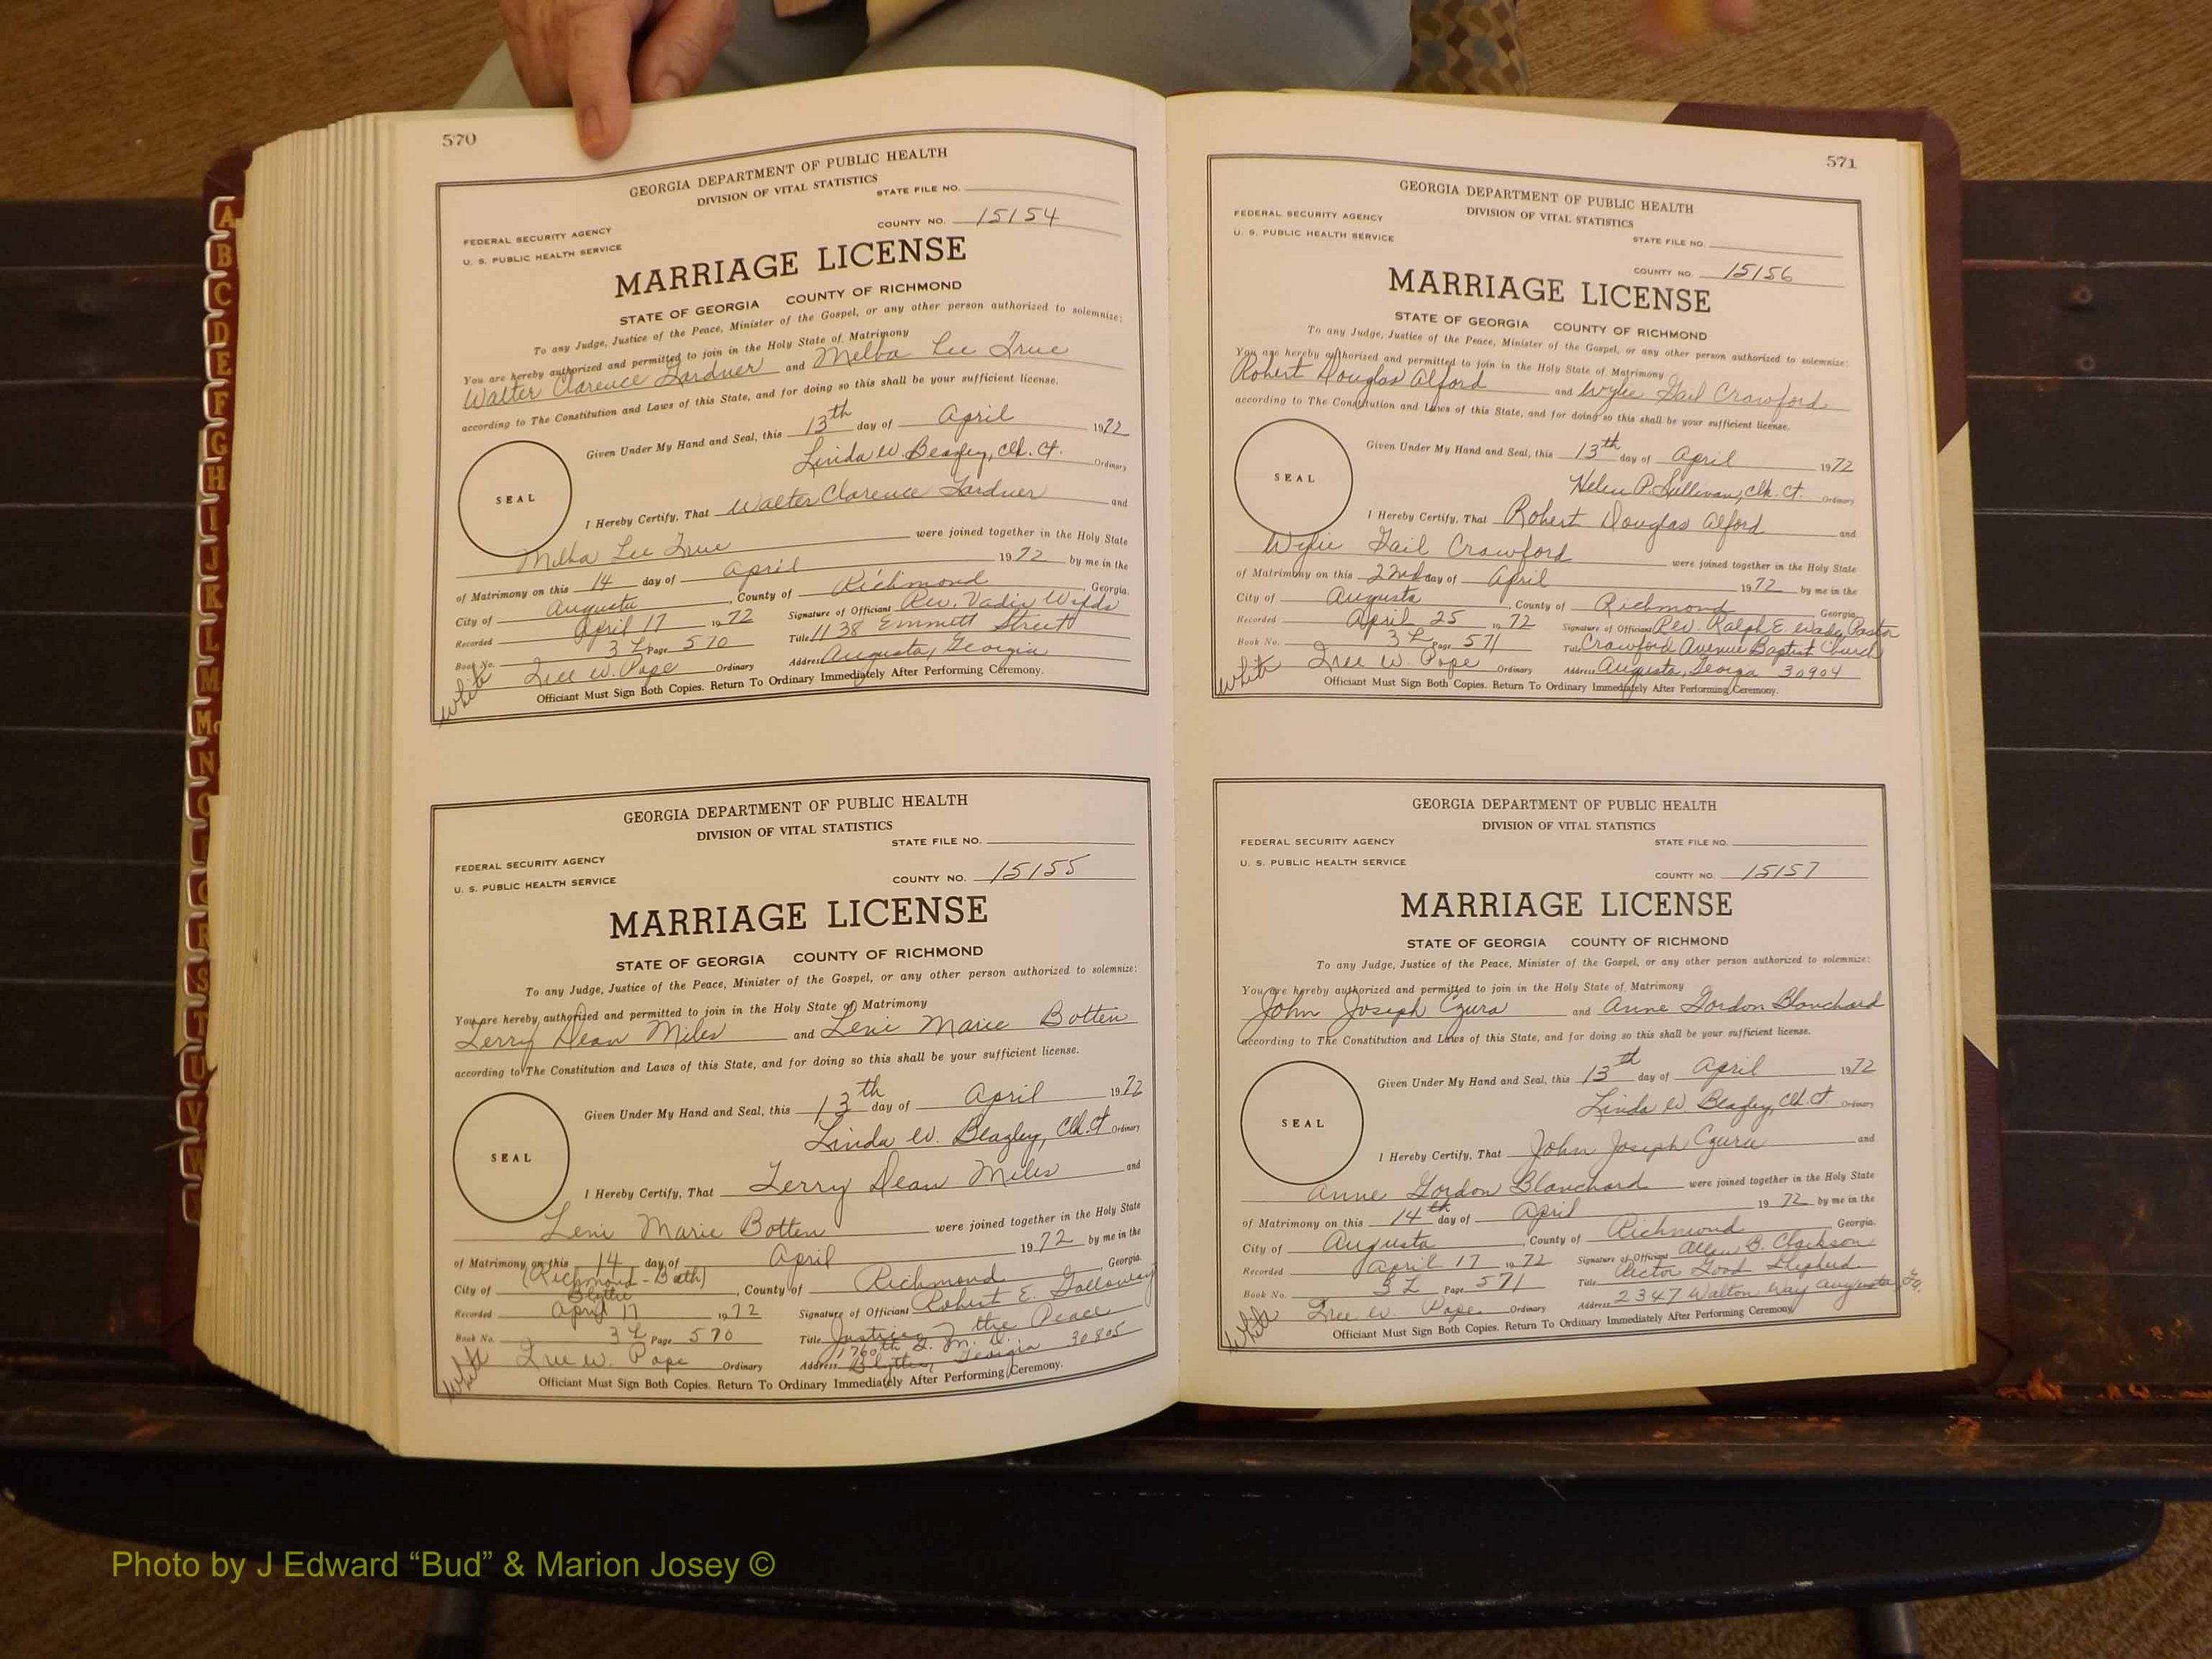 570
GEORGIA DEPARTMENT OF PUBLIC HEALTH
DIVISION OF VITAL STATISTICS
STATE FILE NO.
COUNTY NO. 15154
FEDERAL SECURITY AGENCY
U. S. PUBLIC HEALTH SERVICE
MARRIAGE LICENSE
STATE OF GEORGIA COUNTY OF RICHMOND
To any Judge, Justice of the Peace, Minister of the Gospel, or any other person authorized to solemnize:
You are hereby authorized and permitted to join in the Holy State of Matrimony
Walter Clarence Gardner and Melba Lee True
according to The Constitution and Laws of this State, and for doing so this shall be your sufficient license.
Given Under My Hand and Seal, this 13th day of April 1972
Linda W. Beazley, Clk. Ct. Ordinary
SEAL
I Hereby Certify, That Walter Clarence Gardner and
Melba Lee True were joined together in the Holy State
of Matrimony on this 14 day of April 1972 by me in the
City of Augusta, County of Richmond, Georgia.
Recorded April 17 1972 Signature of Officiant Rev. Vadis Wylds
Book No. 3L Page 570 Title 1138 Emmett Street
White Tree W. Pope Ordinary Address Augusta, Georgia
Officiant Must Sign Both Copies. Return To Ordinary Immediately After Performing Ceremony.
GEORGIA DEPARTMENT OF PUBLIC HEALTH
DIVISION OF VITAL STATISTICS
STATE FILE NO.
FEDERAL SECURITY AGENCY
U. S. PUBLIC HEALTH SERVICE
COUNTY NO. 15155
MARRIAGE LICENSE
STATE OF GEORGIA COUNTY OF RICHMOND
To any Judge, Justice of the Peace, Minister of the Gospel, or any other person authorized to solemnize:
You are hereby authorized and permitted to join in the Holy State of Matrimony
Terry Dean Miles and Leni Marie Botten
according to The Constitution and Laws of this State, and for doing so this shall be your sufficient license.
Given Under My Hand and Seal, this 13th day of April 1972
Linda W. Beazley, Clk. Ct Ordinary
SEAL
I Hereby Certify, That Terry Dean Miles and
Leni Marie Botten were joined together in the Holy State
of Matrimony on this 14 day of April 1972 by me in the
(Richmond - Bath)
City of Blythe, County of Richmond, Georgia.
Recorded April 17 1972 Signature of Officiant Robert E. Galloway
Book No. 3L Page 570 Title Justice of the Peace
1760th G. M. D.
White Tree W. Pope Ordinary Address Blythe, Georgia 30805
Officiant Must Sign Both Copies. Return To Ordinary Immediately After Performing Ceremony.
571
GEORGIA DEPARTMENT OF PUBLIC HEALTH
DIVISION OF VITAL STATISTICS
FEDERAL SECURITY AGENCY
U. S. PUBLIC HEALTH SERVICE
STATE FILE NO.
COUNTY NO. 15156
MARRIAGE LICENSE
STATE OF GEORGIA COUNTY OF RICHMOND
To any Judge, Justice of the Peace, Minister of the Gospel, or any other person authorized to solemnize:
You are hereby authorized and permitted to join in the Holy State of Matrimony
Robert Douglas Alford and Wylie Gail Crawford
according to The Constitution and Laws of this State, and for doing so this shall be your sufficient license.
Given Under My Hand and Seal, this 13th day of April 1972
Helen P. Sullivan, Clk. Ct. Ordinary
SEAL
I Hereby Certify, That Robert Douglas Alford and
Wylie Gail Crawford were joined together in the Holy State
of Matrimony on this 22nd day of April 1972 by me in the
City of Augusta, County of Richmond Georgia.
Recorded April 25 1972 Signature of Officiant Rev. Ralph E. Wade, Pastor
Book No. 3L Page 571 Title Crawford Avenue Baptist Church
White Tree W. Pope Ordinary Address Augusta, Georgia 30904
Officiant Must Sign Both Copies. Return To Ordinary Immediately After Performing Ceremony.
GEORGIA DEPARTMENT OF PUBLIC HEALTH
DIVISION OF VITAL STATISTICS
FEDERAL SECURITY AGENCY
STATE FILE NO.
U. S. PUBLIC HEALTH SERVICE
COUNTY NO. 15157
MARRIAGE LICENSE
STATE OF GEORGIA COUNTY OF RICHMOND
To any Judge, Justice of the Peace, Minister of the Gospel, or any other person authorized to solemnize:
You are hereby authorized and permitted to join in the Holy State of Matrimony
John Joseph Czura and Anne Gordon Blanchard
according to The Constitution and Laws of this State, and for doing so this shall be your sufficient license.
Given Under My Hand and Seal, this 13th day of April 1972
Linda W. Beazley, Clk. Ct. Ordinary
SEAL
I Hereby Certify, That John Joseph Czura and
Anne Gordon Blanchard were joined together in the Holy State
of Matrimony on this 14th day of April 1972 by me in the
City of Augusta, County of Richmond Georgia.
Recorded April 17 1972 Signature of Officiant Allen B. Clarkson
Book No. 3L Page 571 Title Rector Good Shepherd
White Tree W. Pope Ordinary Address 2347 Walton Way Augusta, Ga.
Officiant Must Sign Both Copies. Return To Ordinary Immediately After Performing Ceremony.
A
B
C
D
E
F
G
H
I
J
K
L
M
Mc
N
O
P
Q
R
S
T
U
V
W
Photo by J Edward “Bud” & Marion Josey ©